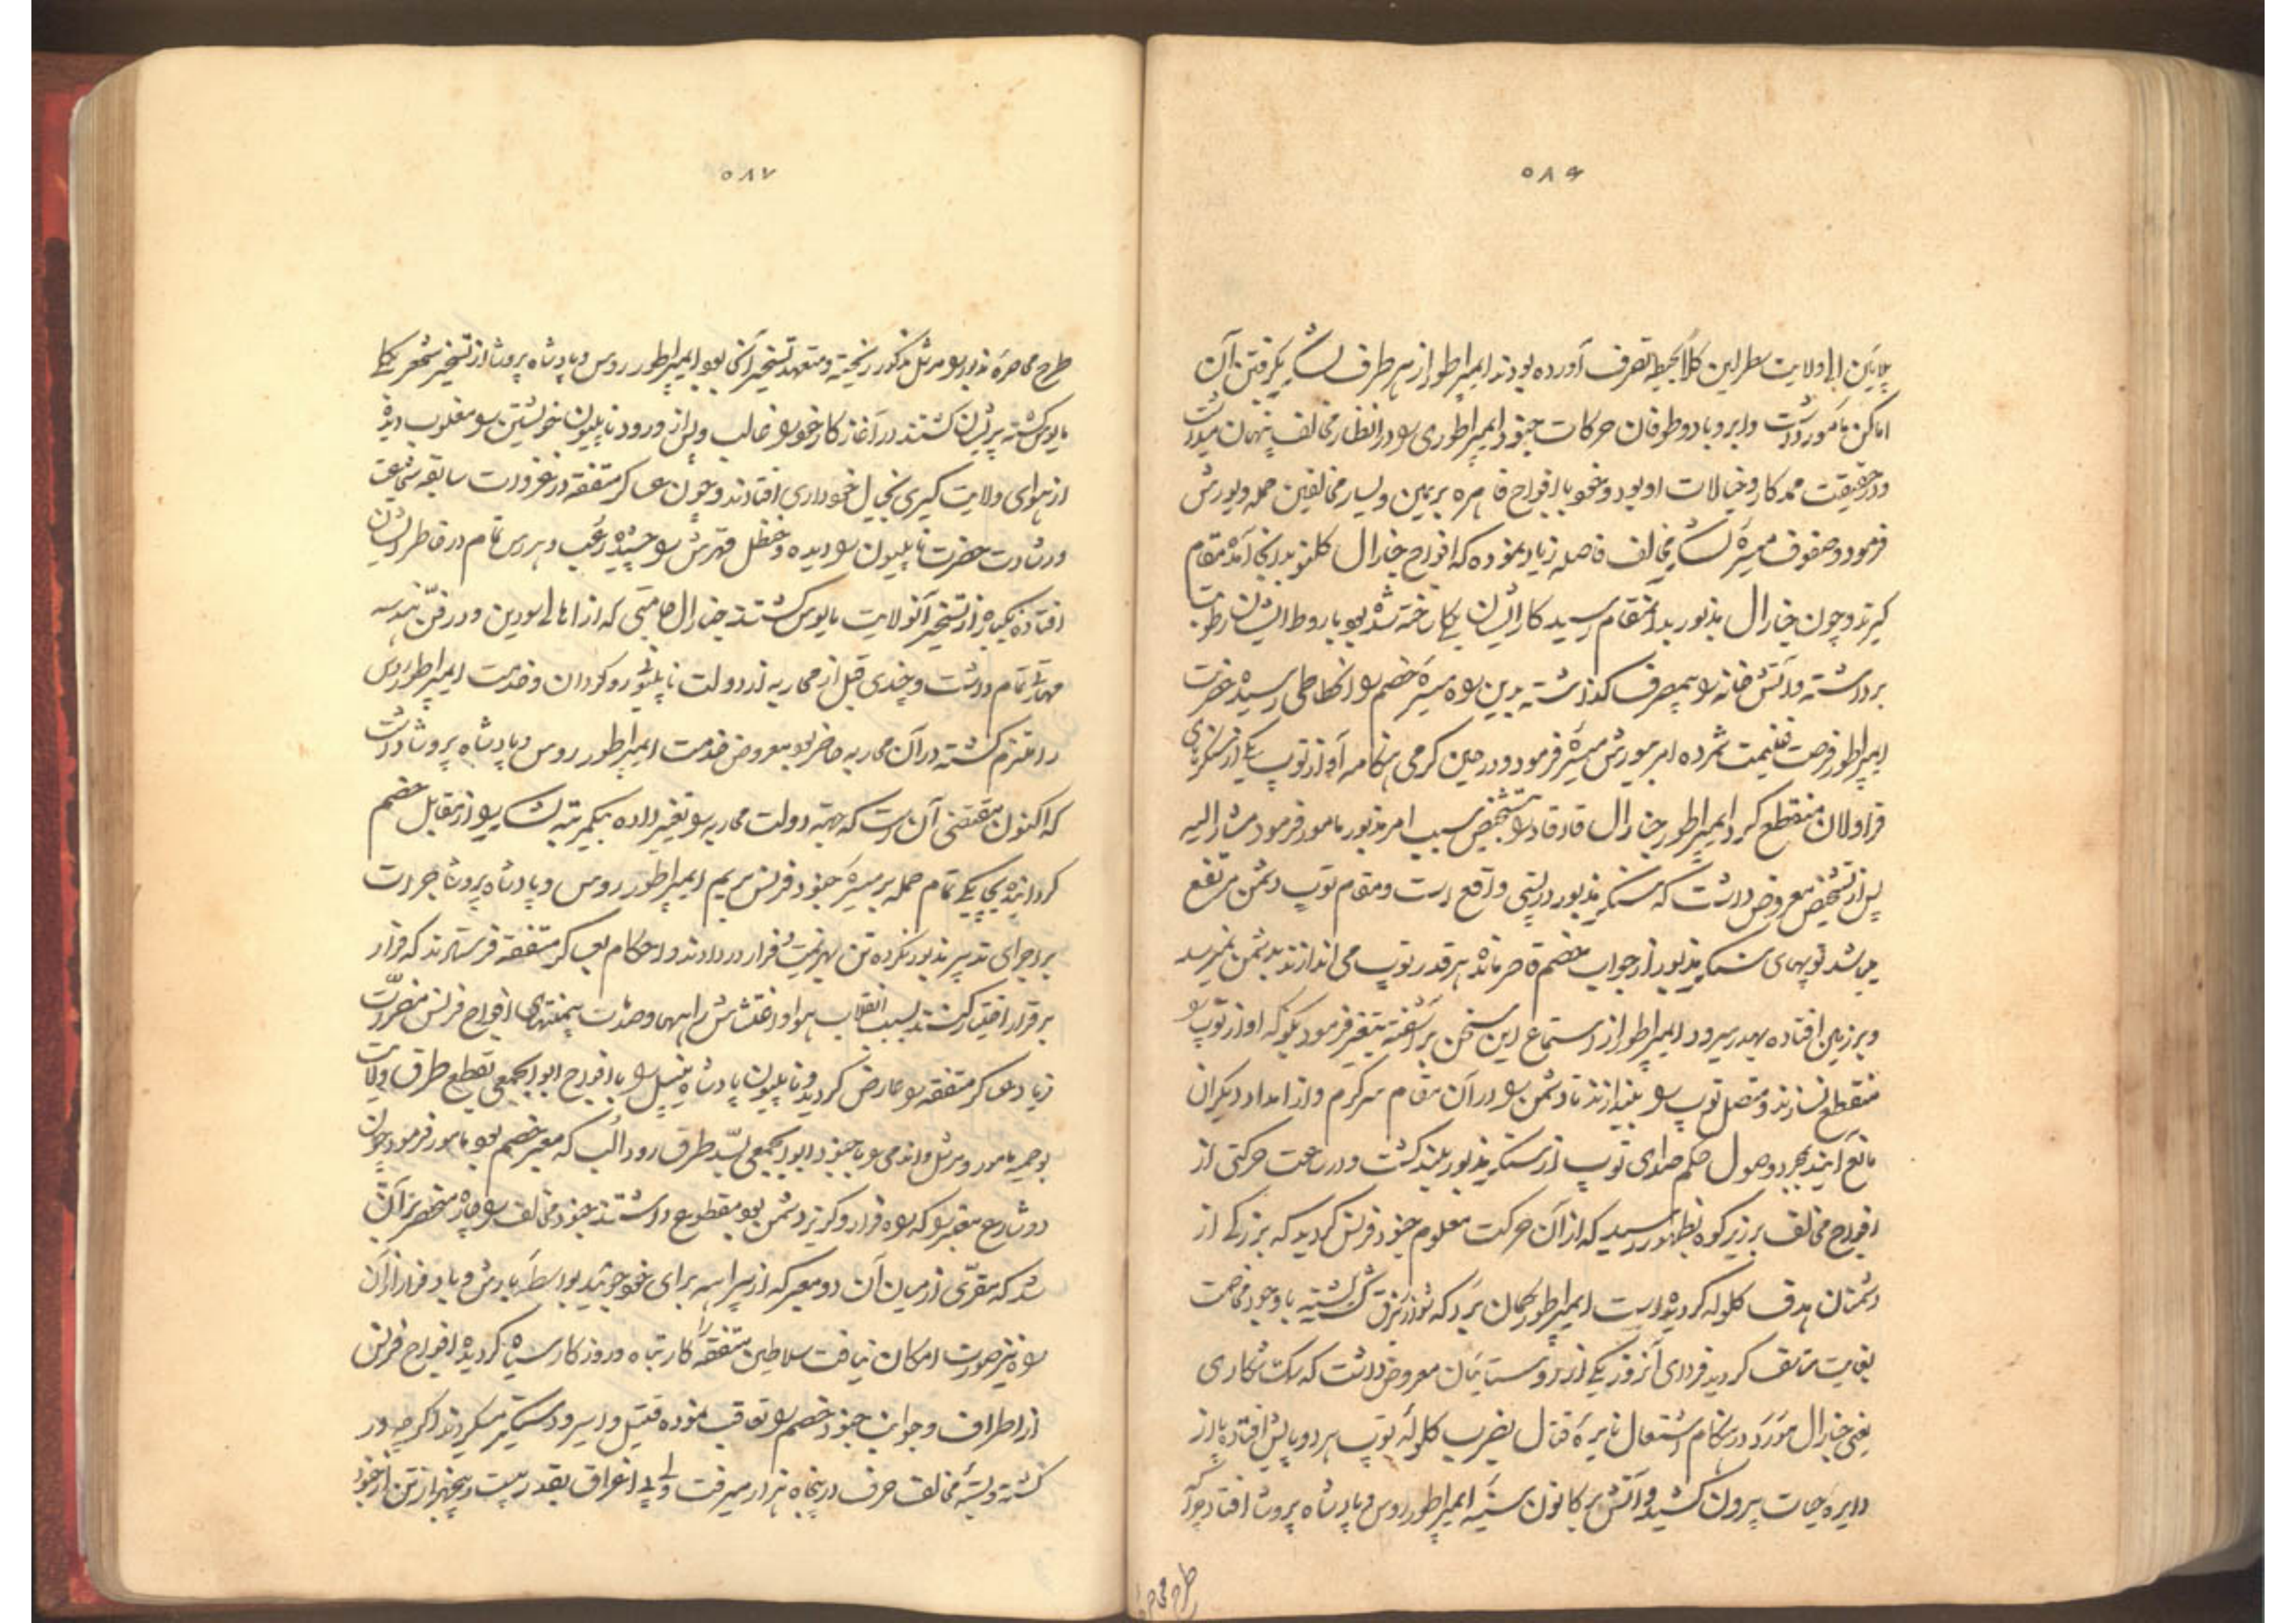 ۵۸۶
پلاین الی ولایت سطراین کلاً بحیطه تصرف آورده بودند ایمپراطور از هر طرف لشکر بگرفتن آن
اماکن مأمور داشت و ابر و باد و طوفان حرکات جنود ایمپراطوری را در انظار مخالف پنهان میداشت
و در حقیقت ممد کار و خیالات او بود و خود با افواج قاهره بر یمین و یسار مخالفین حمله و یورش
فرمود و صفوف میسره لشکر مخالف فاصله زیاد نموده که افواج جنرال کلنو بدانجا آمده مقام
گیرند و چون جنرال مذبور بدانمقام رسید کار ایشان یکجا ساخته شده بود باروط ایشان رطوبت
برداشته و آتش خانه را بیمصرف گذاشته بدین واسطه میسره خصم را انحطاطی رسیده حضرت
ایمپراطور فرصت غنیمت شمرده امر بیورش میسره فرمود و در حین گرمی هنگامه آواز توپ یکی از سنگرهای
قراولان منقطع گردید ایمپراطور جنرال را بتشخیص سبب امر مذبور مأمور فرمود مشار الیه
پس از تشخیص معروض داشت که سنگر مذبور در پستی واقع است و مقام توپ دشمن مرتفع
میباشد توپهای سنگر مذبور از جواب خصم قاصر مانده هر قدر توپ می اندازند بدشمن نمیرسد
و بر زمین افتاده بهدر میرود ایمپراطور از استماع این سخن برآشفته بتغیر فرمود بگو که آواز توپ را
منقطع نسازند و متصل توپ را بیندازند تا دشمن را در آن مقام سرگرم و از امداد دیگران
مانع آیند بمجرد وصول حکم صدای توپ از سنگر مذبور بلند گشت و در ساعت حرکتی از
افواج مخالف بر زبر کوه بظهور رسید که از آن حرکت معلوم جنود فرنس گردید که بزرگی از
دشمنان هدف گلوله گردیده است ایمپراطور گمان برد که کشته با وجود مخاصمت
بغایت متأسف گردید فردای آنروز یکی از روستائیان معروض داشت که سک شکاری
یعنی جنرال مورو در هنگام اشتعال نایره قتال بضرب گلوله توپ هر دو پایش افتاده پا از
دایره حیات بیرون کشید و آتش بر کانون سینه ایمپراطور روس و پادشاه پروشا افتاد چرا که
طرح محاصره
۵۸۷
طرح محاصره مذبور را مرشل مذکور ریخته و متعهد تسخیر آن بود ایمپراطور روس و پادشاه پروشا از تسخیر شهر یکجا
مایوس گشته پریشان گشتند در آغاز کار خود را غالب و پس از ورود ناپلیون خویشتن را مغلوب دیده
از هوای ولایت گیری بخیال خودداری افتادند و چون عساکر متفقه در غزوات سابقه شجاعت
و رشادت حضرت ناپلیون را دیده و حنظل قهرش را چشیده رعب و هراس تمام در خاطر ایشان
افتاده یکباره از تسخیر آنولایت مایوس گشتند جنرال جامینی که از اهالی و در فن هندسه
مهارتی تمام داشت و چندی قبل از محاربه از دولت ناپلیون روگردان و خدمت ایمپراطور روس
را ملتزم گشته در آن محاربه حاضر بود معروض خدمت ایمپراطور روس و پادشاه پروشا داشت
که اکنون مقتضی آن است که جهته دولت محاربه را تغییر داده بیکمرتبه لشکر را از مقابل خصم
گردانیده بچابکی تمام حمله بر میسره جنود فرنس بریم ایمپراطور روس و پادشاه پروشا جرات
بر اجرای تدبیر مذبور نکرده تن بهزیمت و فرار در دادند و احکام بعساکر متفقه فرستادند که فرار
بر قرار اختیار کنند بسبب انقلاب هوا و اغتشاش راهها و صدمات بیمنتهای افواج فرنس مضرت
زیاد عساکر متفقه را عارض گردید و ناپلیون پادشاه نیپل را با افواج ابوابجمعی بقطع طرق ولایت
بوهمیه مأمور و مرشل واندمی را با جنود ابوابجمعی بسد طرق رود الب که معبر خصم بود مأمور فرمود چون
دو شارع معبر را که راه فرار و گریز دشمن بود مقطوع داشتند جنود مخالف را چاره منحصر بر آن
شد که مقری از میان آن دو معبر که از بیراهه برای خود جویند بواسطه بارش و باد فرار از آن
راه نیز صورت امکان نیافت سلاطین متفقه را کار تباه و روزگار سیاه گردیده افواج فرنس
از اطراف و جوانب جنود خصم را تعاقب نموده قتیل و اسیر و دستگیر میکردند اگرچه در
کشته و بسته مخالف حرف در پنجاه هزار میرفت ولی بی اغراق بقدر بیست و پنجهزار تن از جنود